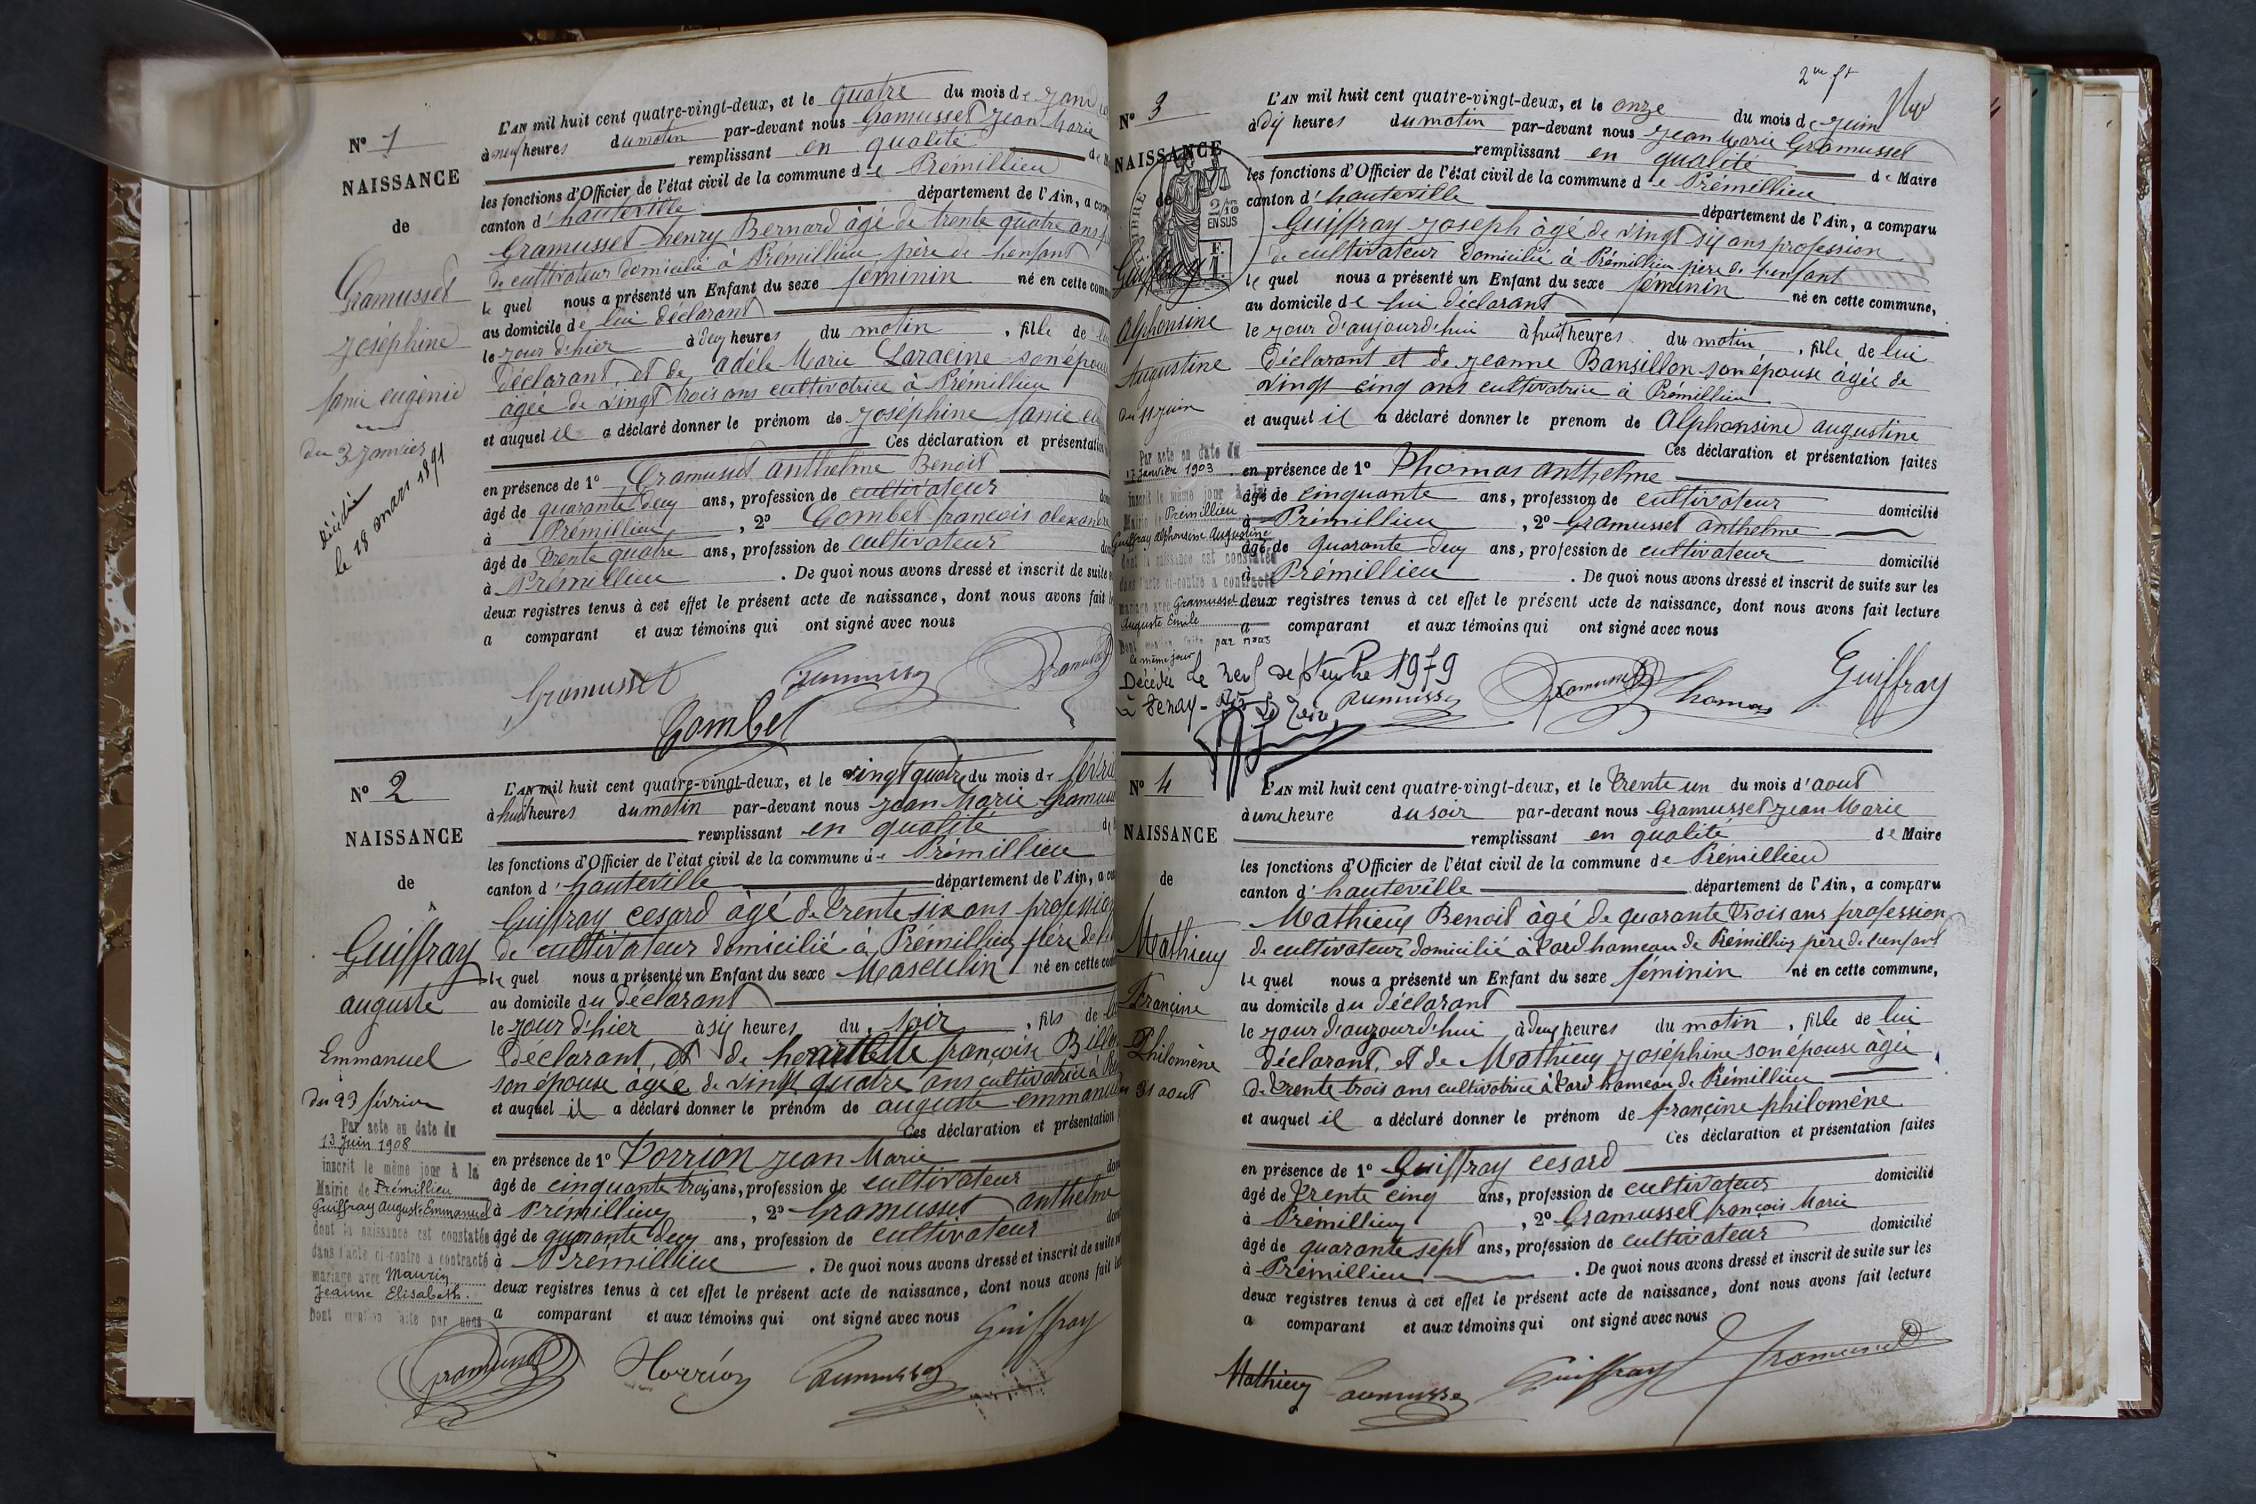 N° 1
NAISSANCE
de
Gramusset
joséphine
fanie eugénie
du 3 janvier
décédée
le 18 mars 1891
L'AN mil huit cent quatre-vingt-deux, et le quatre du mois de
à neuf heures du matin par-devant nous Gramusset jean Marie
remplissant en qualité
les fonctions d'Officier de l'état civil de la commune de Prémillieu
canton d'hauteville département de l'Ain, a
Gramusset henry Bernard âgé de trente quatre ans
de cultivateur domicilié à Prémillieu père de l'enfant
le quel nous a présenté un Enfant du sexe féminin né en cette
au domicile de lui déclarant
le jour d'hier à deux heures du matin, fille de
déclarant et de adèle Marie Laracine son
agée de vingt trois ans cultivatrice à Prémillieu
et auquel il a déclaré donner le prénom de joséphine fanie
Ces déclaration et présentation
en présence de 1° Gramusset anthelme Benoit
âgé de quarante deux ans, profession de cultivateur
à Prémillieu, 2° Gombet françois
âgé de trente quatre ans, profession de cultivateur
à Prémillieu. De quoi nous avons dressé et inscrit de suite
deux registres tenus à cet effet le présent acte de naissance, dont nous avons fait
a comparant et aux témoins qui ont signé avec nous
Gramusset
Gombet
N° 2
NAISSANCE
de
Guiffray
auguste
Emmanuel
du 23 février
Par acte en date du
13 Juin 1908
inscrit le même jour à la
Mairie de Prémillieu
Guiffray Auguste Emmanuel
dont la naissance est constatée
dans l'acte ci-contre a contracté
mariage avec Maurin
Jeanne Elisabeth.
Dont mention faite par nous
L'AN mil huit cent quatre-vingt-deux, et le vingt quatre du mois de
à huit heures du matin par-devant nous jean Marie
remplissant en qualité
les fonctions d'Officier de l'état civil de la commune de Prémillieu
canton d'hauteville département de l'Ain, a
Guiffray cesard âgé de trente six ans profession
de cultivateur domicilié à Prémillieu père de
le quel nous a présenté un Enfant du sexe Masculin né en cette
au domicile du déclarant
le jour d'hier à six heures du soir, fils de
déclarant, et de henriette françoise
son épouse âgée de vingt quatre ans cultivatrice à
et auquel il a déclaré donner le prénom de auguste emmanuel
Ces déclaration et présentation
en présence de 1° Dorrion jean Marie
âgé de cinquante trois ans, profession de cultivateur
à Prémillieu, 2° Gramusset anthelme
âgé de quarante deux ans, profession de cultivateur
à Prémillieu. De quoi nous avons dressé et inscrit de suite
deux registres tenus à cet effet le présent acte de naissance, dont nous avons fait
a comparant et aux témoins qui ont signé avec nous
Guiffray
Gramusset
N° 3
NAISSANCE
de
2/10
EN SUS
Guiffray
Alphonsine
Augustine
du 11 juin
Par acte en date du
17 janvier 1903
inscrit le même jour à la
Mairie de Prémillieu
Guiffray Alphonsine Augustine
dont la naissance est constatée
dans l'acte ci-contre a contracté
mariage avec Gramusset
Auguste Emile
Dont mention faite par nous
le même jour
L'AN mil huit cent quatre-vingt-deux, et le onze du mois de juin
à dix heures du matin par-devant nous jean Marie Gramusset
remplissant en qualité de Maire
les fonctions d'Officier de l'état civil de la commune de Prémillieu
canton d'hauteville département de l'Ain, a comparu
Guiffray joseph âgé de vingt six ans profession
de cultivateur domicilié à Prémillieu père de l'enfant
le quel nous a présenté un Enfant du sexe féminin né en cette commune,
au domicile de lui déclarant
le jour d'aujourd'hui à huit heures du matin, fille de lui
déclarant et de jeanne Bansillon son épouse âgée de
vingt cinq ans cultivatrice à Prémillieu
et auquel il a déclaré donner le prenom de Alphonsine augustine
Ces déclaration et présentation faites
en présence de 1° Thomas anthelme
âgé de cinquante ans, profession de cultivateur domicilié
à Prémillieu, 2° Gramusset anthelme
âgé de quarante deux ans, profession de cultivateur domicilié
à Prémillieu. De quoi nous avons dressé et inscrit de suite sur les
deux registres tenus à cet effet le présent acte de naissance, dont nous avons fait lecture
a comparant et aux témoins qui ont signé avec nous
Décédée le neuf septembre 1979
à Tenay
Thomas
Guiffray
N° 4
NAISSANCE
de
Mathieu
Françine
Philomène
31 aout
L'AN mil huit cent quatre-vingt-deux, et le trente un du mois d'aout
à une heure du soir par-devant nous Gramusset jean Marie
remplissant en qualité de Maire
les fonctions d'Officier de l'état civil de la commune de Prémillieu
canton d'hauteville département de l'Ain, a comparu
Mathieu Benoit âgé de quarante trois ans profession
de cultivateur domicilié à hameau de Prémillieu père de l'enfant
le quel nous a présenté un Enfant du sexe féminin né en cette commune,
au domicile du déclarant
le jour d'aujourd'hui à deux heures du matin, fille de lui
déclarant, et de Mathieu joséphine son épouse âgée
de trente trois ans cultivatrice à hameau de Prémillieu
et auquel il a déclaré donner le prénom de françine philomène
Ces déclaration et présentation faites
en présence de 1° Guiffray cesard
âgé de trente cinq ans, profession de cultivateur domicilié
à Prémillieu, 2° Gramusset françois Marie
âgé de quarante sept ans, profession de cultivateur domicilié
à Prémillieu. De quoi nous avons dressé et inscrit de suite sur les
deux registres tenus à cet effet le présent acte de naissance, dont nous avons fait lecture
a comparant et aux témoins qui ont signé avec nous
Mathieu
Guiffray